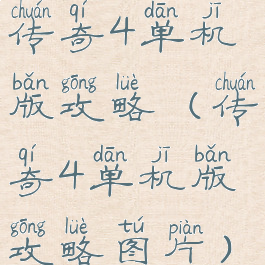 chuán qí dān jī
传奇4单机
bǎn gōng lüè chuán
版攻略（传
qí dān jī bǎn
奇4单机版
gōng lüè tú piàn
攻略图片）